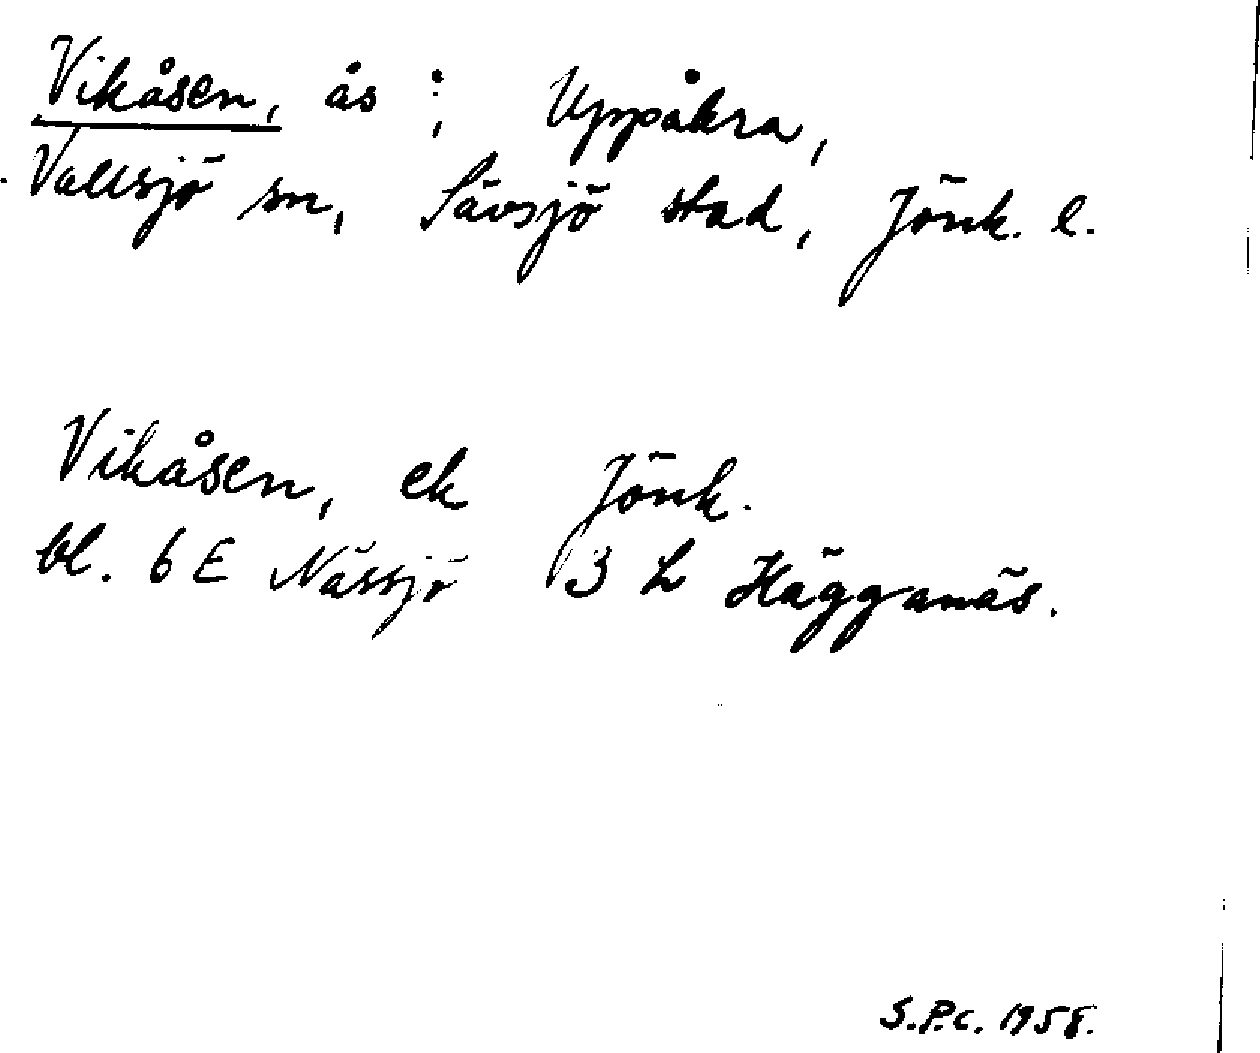 Vikåsen, ås ; Uppåkra,
Vallsjö sn, Sävsjö stad, Jönk. l.
Vikåsen, ek Jönk.
bl. 6 E Nässjö 3 h Hägganäs.
S.P.C. 1958.